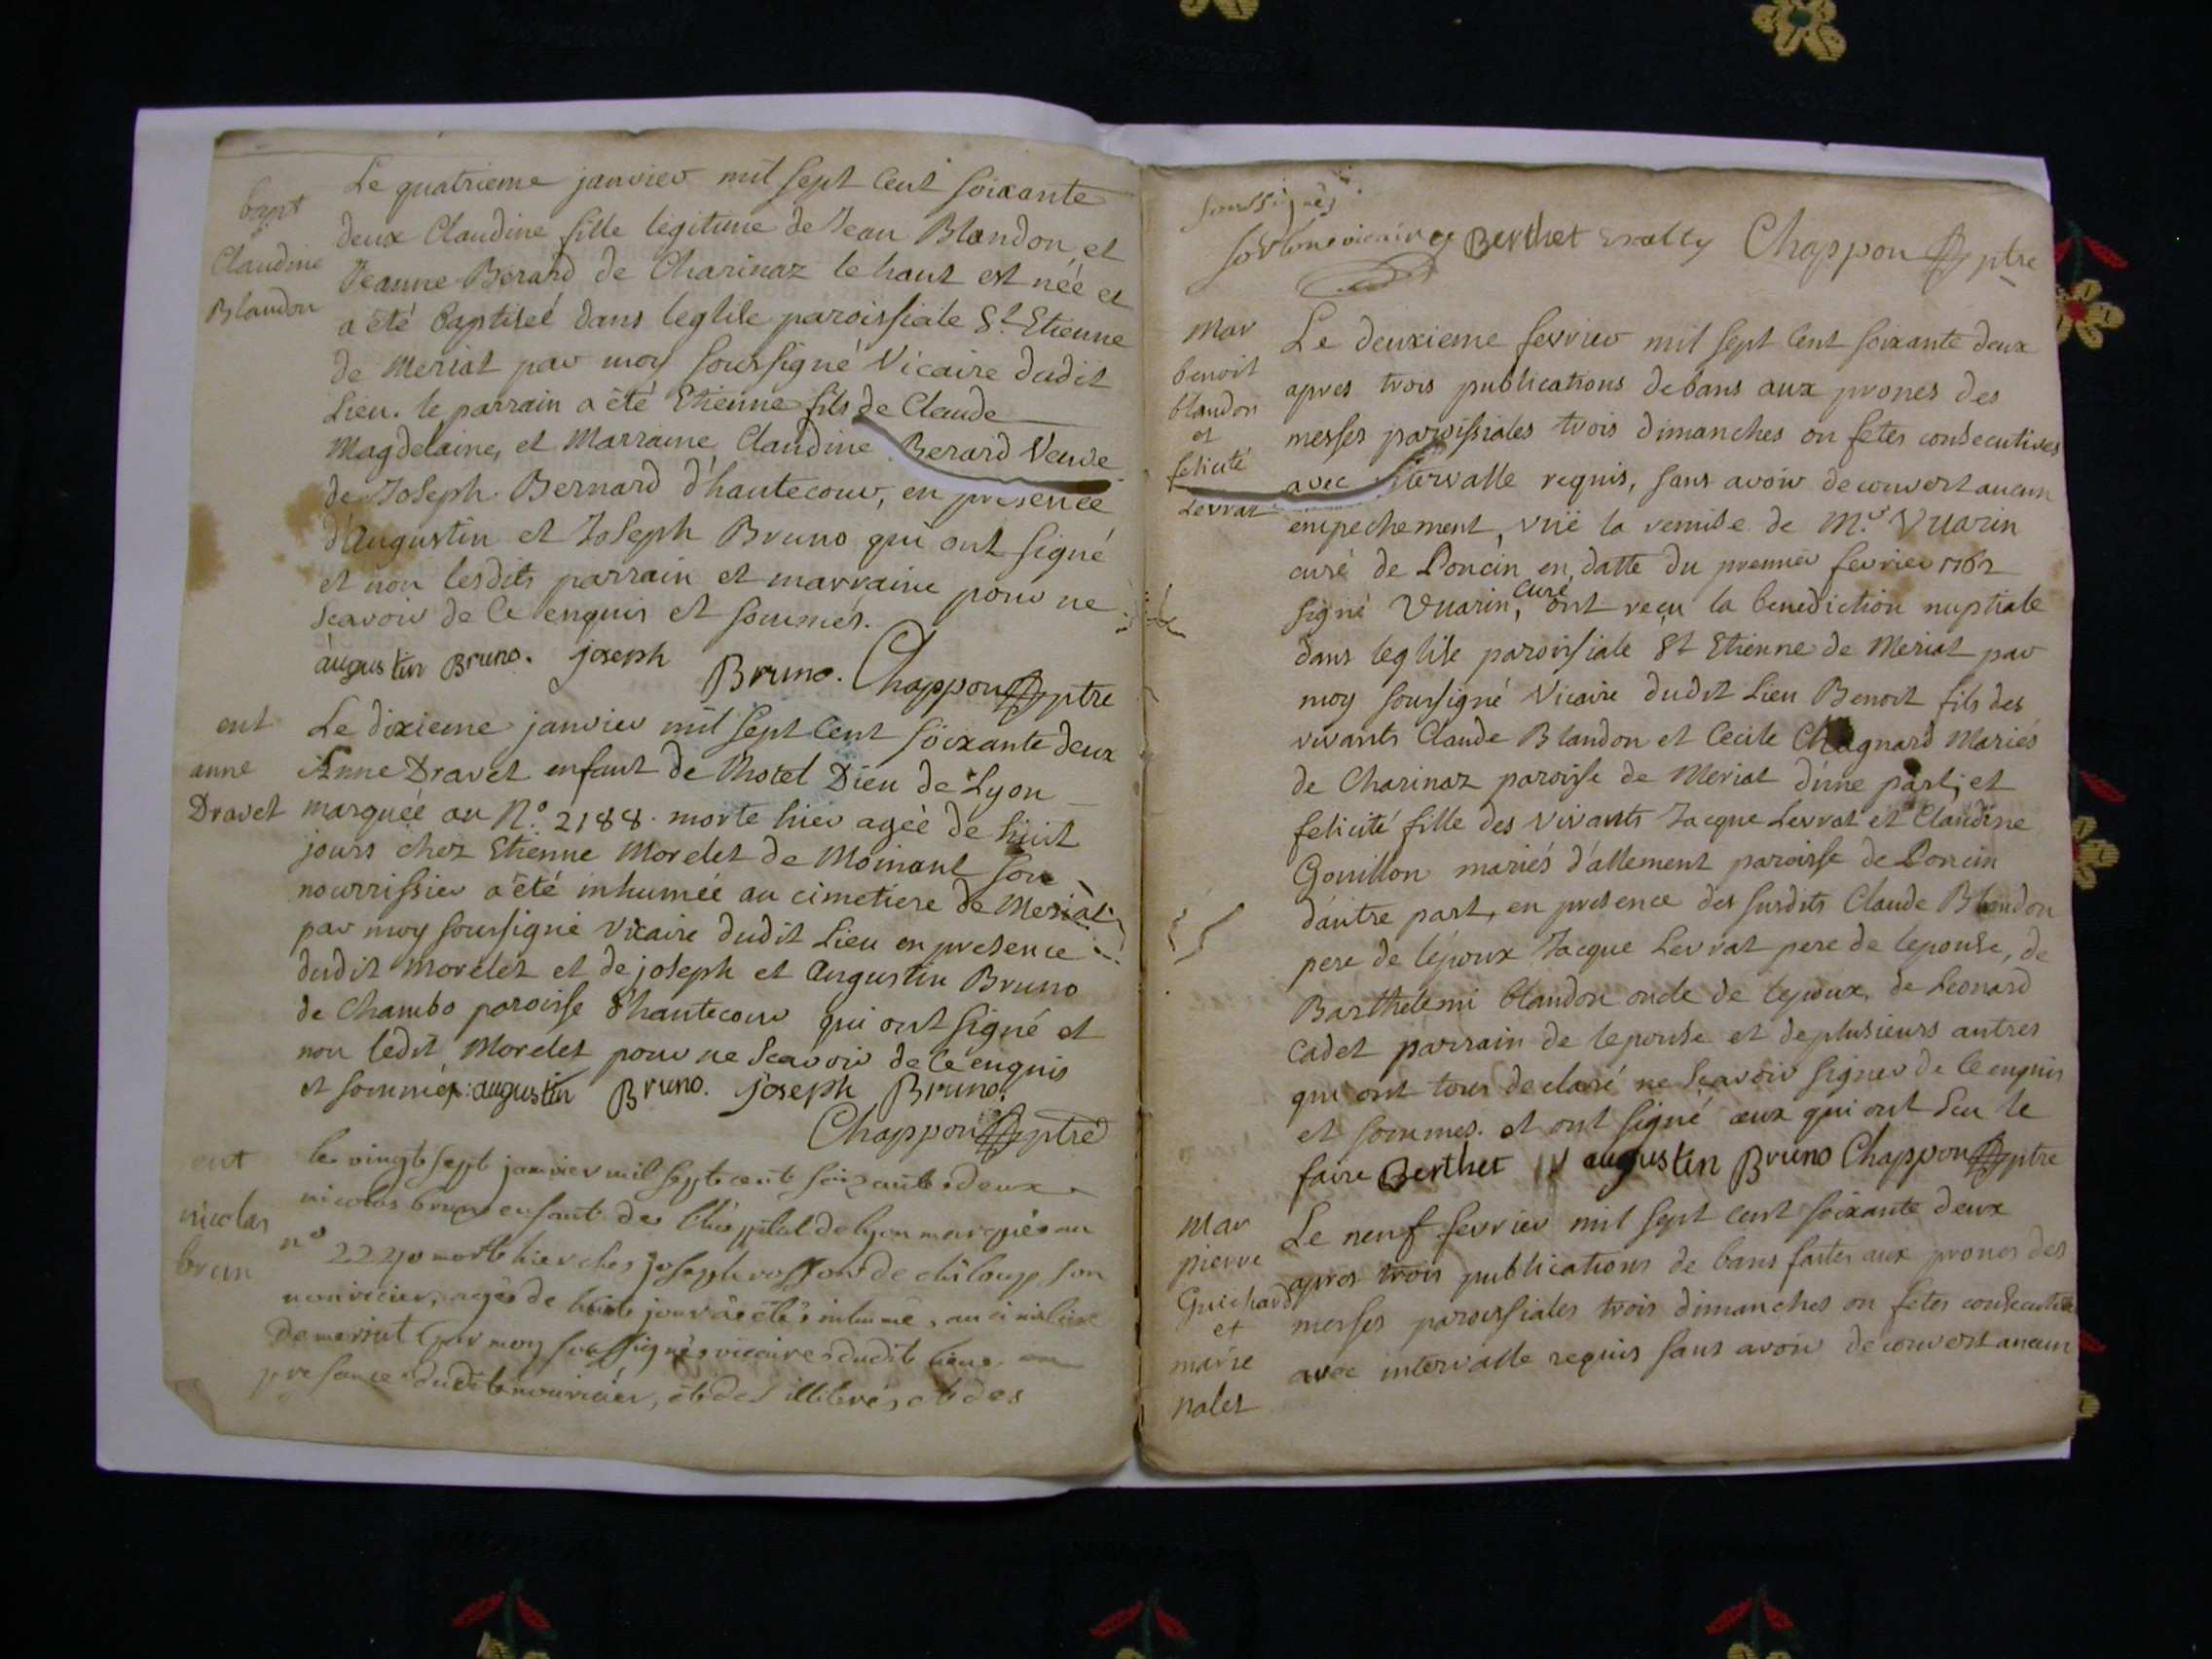 bapt
Claudine
Blandon
Le quatrieme janvier mil sept cent soixante
deux Claudine fille legitime de Jean Blandon et
Jeanne Berard de Charinaz le haut est née et
a été baptisée dans leglise paroissiale St. Etienne
de Meriat par moy soussigné Vicaire dudit
Lieu. le parrain a été Etienne fils de Claude
Magdelaine, et Marraine Claudine Berard Veuve
de Joseph Bernard d'hautecour, en presence
d'Augustin et Joseph Bruno qui ont signé
et non lesdits parrain et marraine pour ne
scavoir de ce enquis et sommés.
augustin Bruno. joseph Bruno. Chappon ptre
ent
anne
Dravet
Le dixieme janvier mil sept cent soixante deux
Anne Dravet enfant de l'hotel Dieu de Lyon
marquée au N.o 2188. morte hier agée de huit
jours chez Etienne Morelet de Moinant son
nourrissier a été inhumée au cimetiere de Meriat
par moy soussigné Vicaire dudit Lieu en presence
dudit morelet et de joseph et Augustin Bruno
de Chambo paroisse d'hautecour qui ont signé et
non ledit Morelet pour ne scavoir de ce enquis
et sommés. augustin Bruno. joseph Bruno.
Chappon ptre
ent
nicolas
brun
le vingt sept janvier mil sept cent soixante deux
nicolas brun enfant de l'hopital de lyon marqués au
no 2240 mort hier ches joseph de chiloup son
nouricier, agés de huit jour a étés inhumé, au
de meriat par moy soussignés vicaire dudit lieu en
presance dudit nouricier, et des illiterés et des
soussignés
vicaire Berthet Chappon ptre
Mar
benoit
blandon
et
felicité
Levrat
Le deuxieme fevrier mil sept cent soixante deux
apres trois publications de bans aux prones des
messes paroissiales trois dimanches ou fetes consecutives
avec intervalle requis, sans avoir decouvert aucun
empechement, vüe la remise de Mr. Vuarin
curé de Poncin en datte du premier fevrier 1762
signé Vuarin, curé ont reçu la benediction nuptiale
dans leglise paroissiale St Etienne de Meriat par
moy soussigné Vicaire dudit Lieu Benoit fils des
vivants Claude Blandon et Cecile Chagnard Mariés
de Charinaz paroisse de Meriat d'une part, et
felicité fille des vivants Jacque Levrat et Claudine
Gouillon mariés d'allement paroisse de Poncin
d'autre part, en presence des susdits Claude Blandon
pere de lépoux Jacque Levrat pere de lepouse, de
Barthelemi blandon oncle de lepoux, de Leonard
Cadet parrain de lepouse et de plusieurs autres
qui ont tous declaré ne scavoir signer de ce enquis
et sommes. et ont signé ceux qui ont scu le
faire Berthet augustin Bruno Chappon ptre
Mar
pierre
Guichard
et
marie
nalet
Le neuf fevrier mil sept cent soixante deux
apres trois publications de bans faites aux prones des
messes paroissiales trois dimanches ou fetes consecutives
avec intervalle requis sans avoir decouvert aucun